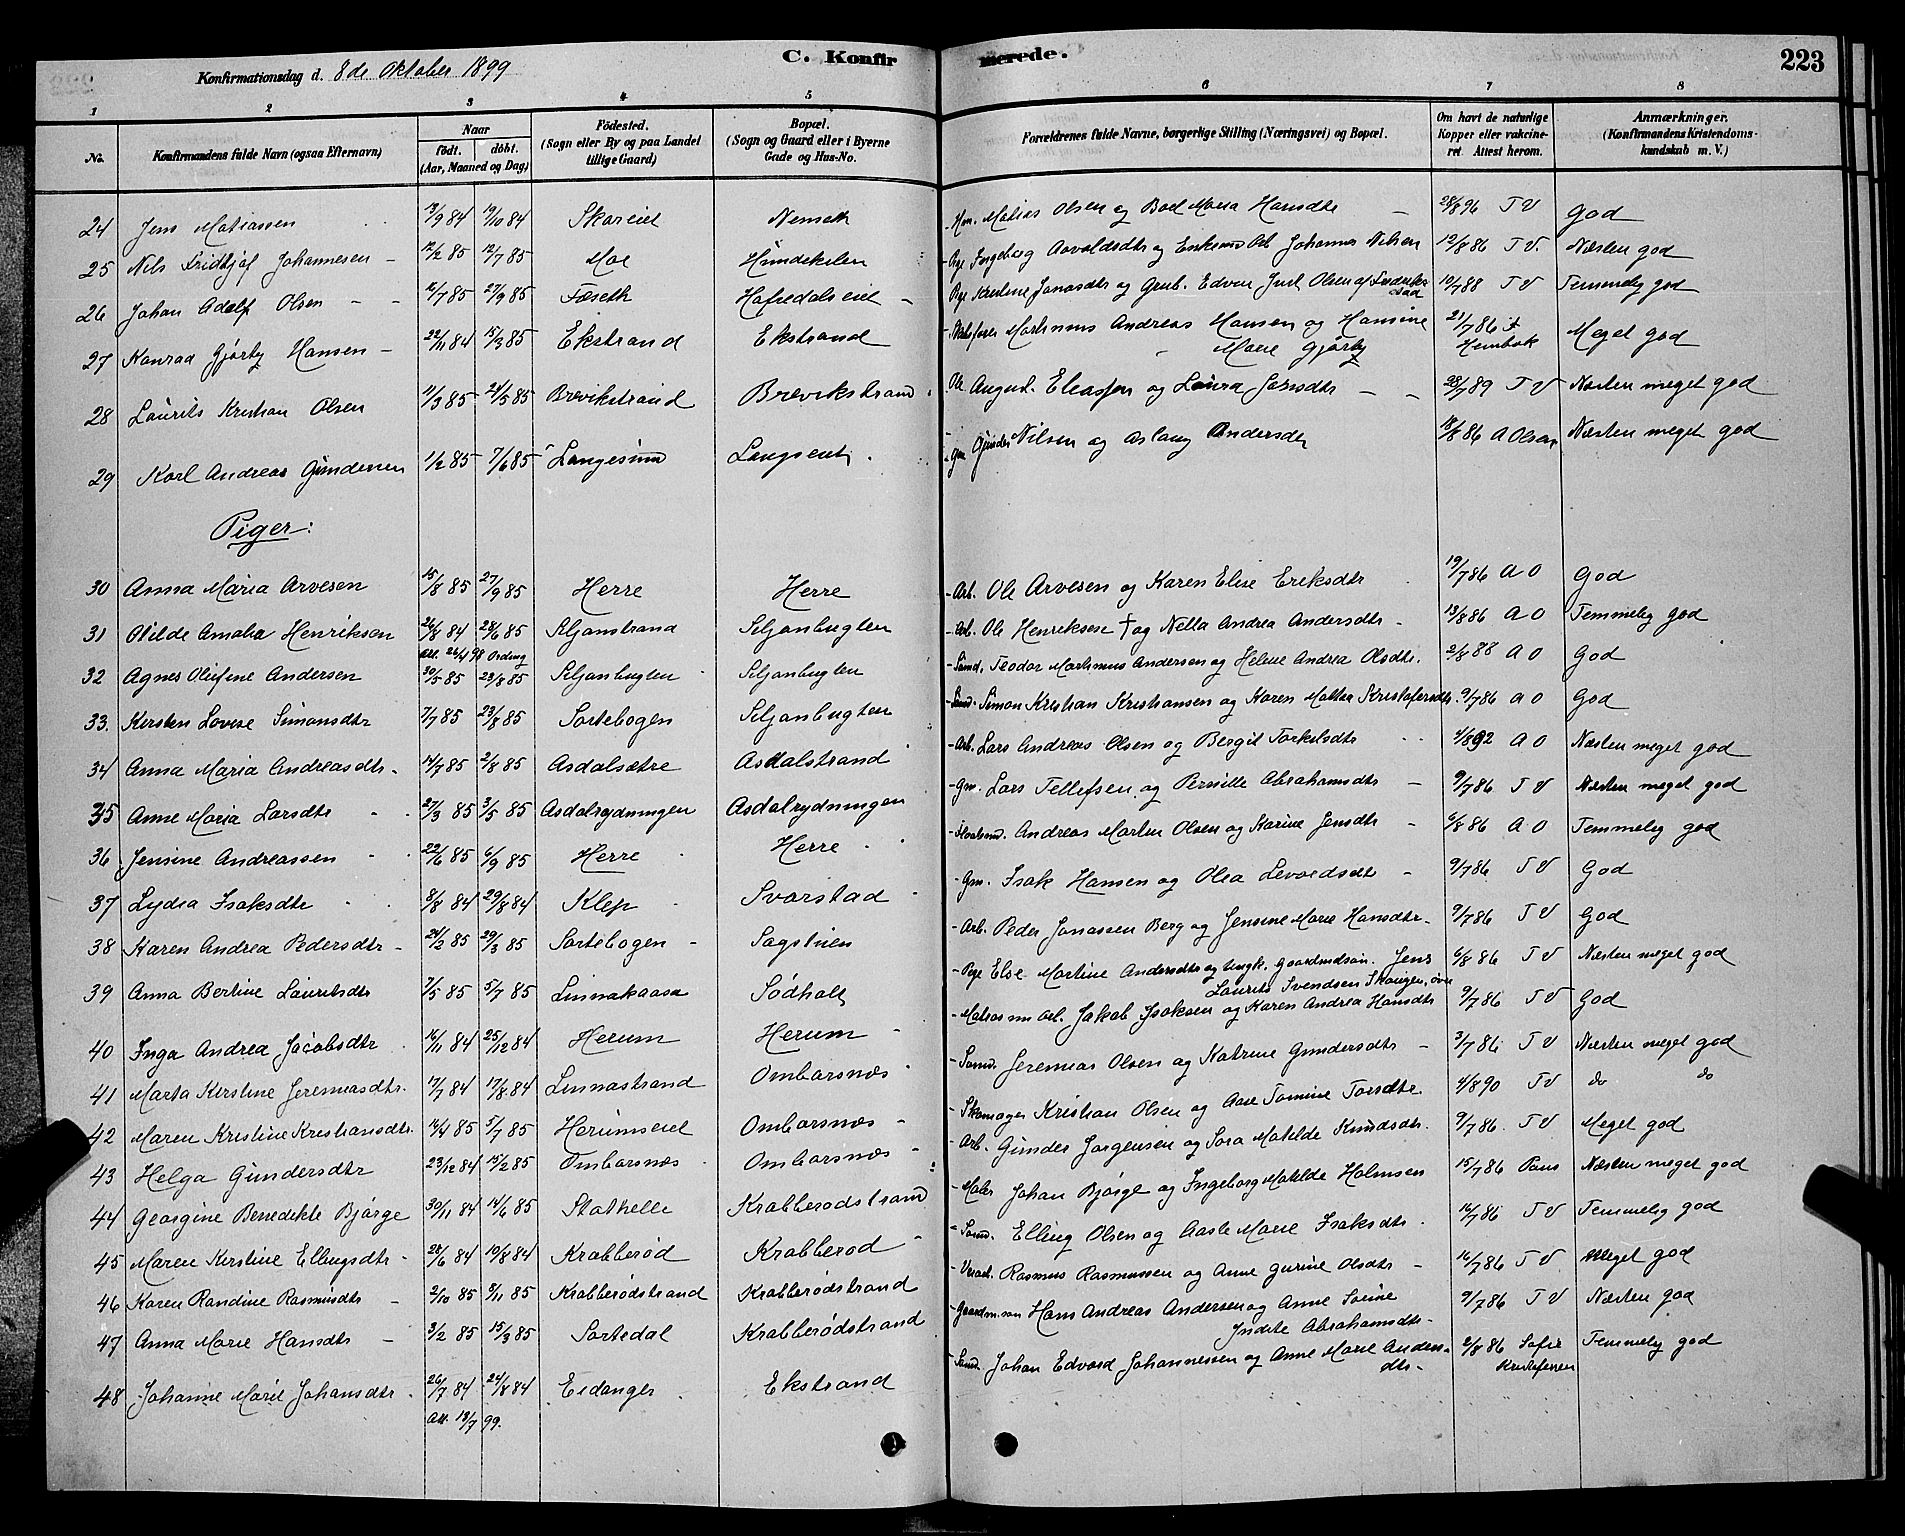 Konfirmationsdag d. 8de Oktober 1899
C. Konfirmerede.
223
1 2 3 4 5 6 7 8
No. Konfirmandens fulde Navn (ogsaa Efternavn) Naar født. døbt. (Aar, Maaned og Dag) Fødested. (Sogn eller By og paa Landet tillige Gaard) Bopæl. (Sogn og Gaard eller i Byerne Gade og Hus-No. Forældrenes fulde Navne, borgerlige Stilling (Næringsvei) og Bopæl. Om havt de naturlige Kopper eller vakcineret. Attest herom. Anmærkninger. (Konfirmandens Kristendomskundskab m. V.)
24 Jens Matiassen /9 84 19/10 84 Skareiet Matias Olsen og Maria Hansdtr 28/8 96 T V God
25 Nils Fridtjof Johannesen 12/2 85 12/7 85 Moe Hundekilen Pige Ingeborg Aavaldsdtr og Johannes Nilsen 12/8 86 T V. Næsten god
26 Johan Adolf Olsen /7 85 27/9 85 Fæseth Hafredalseiet Pige Kristine Jonasdtr og Edvin Juel Olsen af Frederikstad 10/7 88 T V Temmelig god
27 Konrad Gjørby Hansen 22/11 84 15/3 85 Ekstrand Ekstrand Martinius Andreas Hansen og Hansine Marie Gjørby 21/7 86 Meget god
28 Laurits Kristian Olsen 11/3 85 24/5 85 Brevikstrand Brevikstrand August Eliassen og Laura Jensdtr 28/7 89 T V Næsten meget god
29 Karl Andreas Gundersen 1/2 85 7/6 85 Langesund Gm. Gunder Nilsen og Aslaug Andersdtr 18/8 86 A Olsen Næsten meget god
Piger:
30 Anna Maria Arvesen 15/8 85 27/9 85 Herre Herre Arb. Ole Arvesen og Karen Elise Eriksdtr 19/7 86 A O God
31 Otilde Amalia Henriksen 26/8 84 28/6 85 Siljanstrand Siljanbugten Arb. Ole Henriksen † og Nella Andrea Andersdtr 13/8 86 A O Temmelig god
32 Agnes Olufine Andersen 30/5 85 23/8 85 Siljanbugten Siljanbugten Sømd. Teodor Martinius Andersen og Helene Andrea Olsdtr. 2/8 88 A O God
33. Kirsten Lovise Simonsdtr 7/7 85 23/8 85 Sortebogen Siljanbugten Sømd. Simon Kristian Kristiansen og Karen Mattea Kristofersdtr. 9/7 86 A O God
34 Anna Maria Andreasdtr. 14/7 85 2/8 85 Asdalsætre Asdalstrand Arb. Lars Andreas Olsen og Bergit Torkilsdtr 4/8 92 A O Næsten meget god
35 Anne Maria Larsdtr 27/3 85 3/5 85 Asdalrydningen Asdalrydningen Gm. Lars Tellefsen og Pernille Abrahamsdtr 9/7 86 T V Næsten meget god
36 Jensine Andreassen 22/6 85 6/9 85 Herre Herre Andreas Martin Olsen og Karine Jensdtr 6/8 86 A O Temmelig god
37 Lydia Isaksdtr 8/8 84 29/8 84 Klep Svarstad Gm. Isak Hansen og Olea Levordsdtr 9/7 86 T V God
38 Karen Andrea Pedersdtr 24/2 85 29/3 85 Sortebogen Sagstuen Arb. Peder Jonassen Berg og Jensine Marie Hansdtr 9/7 86 T V God
39 Anna Bertine Lauritsdtr 7/5 85 5/7 85 Linnakaasa Sødholt Pige Else Martine Andersdtr og Ungk. Gaardmdsøn. Jens Laurits Svendsen Skougen, 6/8 86 T V Næsten meget god
40 Inga Andrea Jacobsdtr 16/11 84 25/12 84 Herum Herum Jakob Isaksen og Karen Andrea Hansdtr 9/7 86 T V God
41 Marta Kirstine Jeremiasdtr. 17/7 84 17/8 84 Linnastrand Ombarsnæs Sømd. Jeremias Olsen og Katrine Gundersdtr 3/7 86 T V Næsten meget god
42 Maren Kristine Kristiansdtr. 14/4 85 5/7 85 Herumseiet Ombarsnæs Skomager Kristian Olsen og Aase Tomine Torsdtr 4/8 90 T V do do
43 Helga Gundersdtr 23/12 84 15/2 85 Ombarsnæs Ombarsnæs Arb. Gunder Jørgensen og Sara Matilde Knudsdtr. 9/7 86. T V Meget god
44 Georgine Benedikte Bjørge 30/11 84 14/6 85 Stathelle Krabberødstrand Maler Johan Bjørge og Ingeborg Matilde Holmsen 15/7 86 Paus Næsten meget god
45 Maren Kirstine Ellingsdtr 28/6 84 10/8 84 Krabberød Krabberød Sømd. Elling Olsen og Aasle Marie Isaksdtr. 16/7 86 T V Temmelig god
46 Karen Randine Rasmusdtr 2/10 85 8/11 85 Krabberødstrand Krabberødstrand Rasmus Rasmussen og Anne Gurine Olsdtr 16/7 86 T V Meget god
47 Anna Marie Hansdtr 3/2 85 15/3 85 Sortedal Krabberødstrand Hans Andreas Andersen og Anne Abrahamsdtr 9/7 86 T V Næsten god
48 Johanne Marie Johansdtr. 26/7 84 24/8 84 Eidanger Ekstrand Sømd. Johan Edvard Johannessen og Anne Marie Andersdtr 2/8 86 Sofie Kristofersen Temmelig god
Att. 13/7 99.